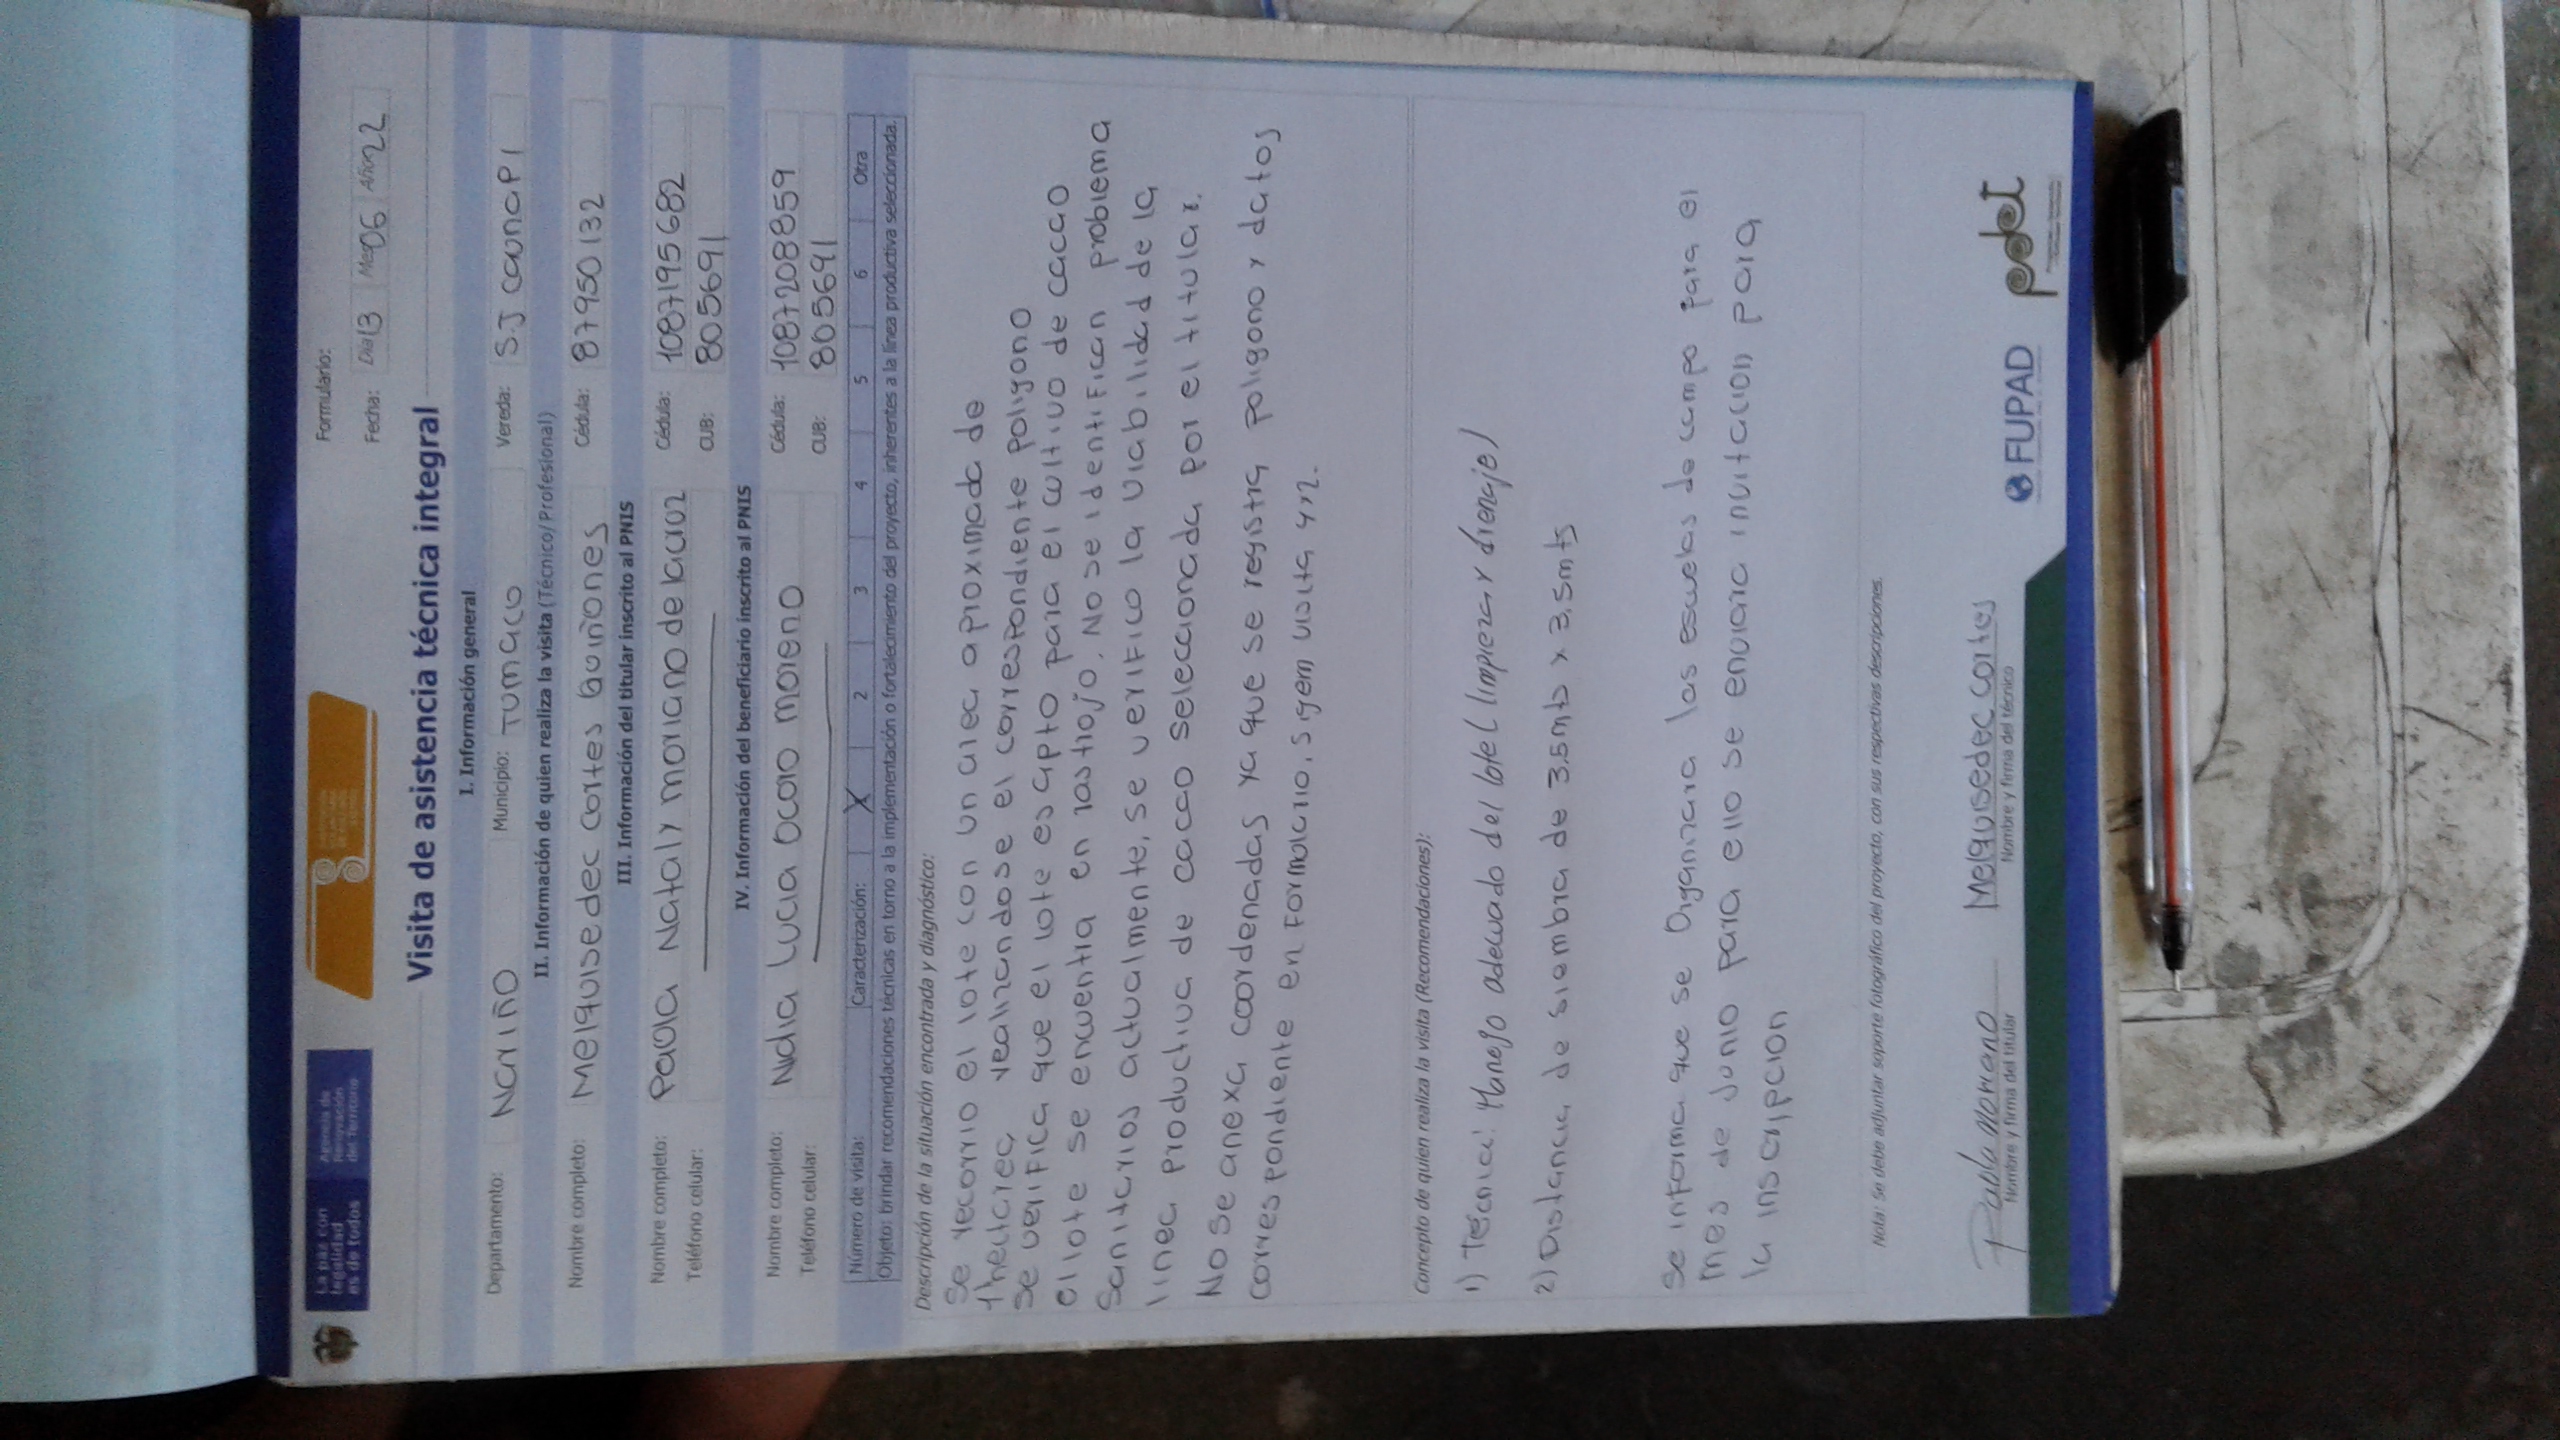 La paz con
legalidad
es de todos
Agencia de
Renovación
del Territorio
Formulario:
Fecha: Día 13 Mes 06 Año 22
Visita de asistencia técnica integral
I. Información general
Departamento: Nariño Municipio: Tumaco Vereda: S.J caunapi
II. Información de quien realiza la visita (Técnico/ Profesional)
Nombre completo: Melquisedec cortes Quiñones Cédula: 87950132
III. Información del titular inscrito al PNIS
Nombre completo: Paola Nataly moriano de la cruz Cédula: 1087195682
Teléfono celular: CUB: 805691
IV. Información del beneficiario inscrito al PNIS
Nombre completo: Nidia Lucia Ocoro moreno Cédula: 1087208859
Teléfono celular: CUB: 805691
Número de visita: Caracterización: X 2 3 4 5 6 Otra
Objeto: brindar recomendaciones técnicas en torno a la implementación o fortalecimiento del proyecto, inherentes a la línea productiva seleccionada.
Descripción de la situación encontrada y diagnóstico:
Se recorrio el lote con un area aproximada de
1hectarea, realizandose el correspondiente poligono
Se verifica que el lote es apto para el cultivo de cacao
el lote se encuentra en rastrojo. No se identifican problema
Sanitarios actualmente, se verifico la viabilidad de la
linea productiva de cacao seleccionada por el titular.
No se anexa coordenadas ya que se registra poligono y datos
correspondiente en formulario, sigem visita 4n2.
Concepto de quien realiza la visita (Recomendaciones):
1) Tecnica: Manejo adecuado del lote (limpieza y drenaje)
2) Distancia de siembra de 3.5mts x 3.5mts
Se informa que se Organizara las escuelas de campo para el
mes de Junio para ello se enviara invitacion para
la inscripcion
Nota: Se debe adjuntar soporte fotográfico del proyecto, con sus respectivas descripciones.
Paola moriano
Nombre y firma del titular
Melquisedec cortes
Nombre y firma del técnico
FUPAD
pdet